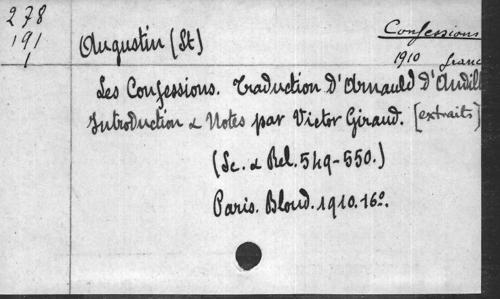 278
191
1
Confessions
Augustin (St)
1910 franc
Les Confessions. Traduction d'Arnauld d'Andill
Introduction & Notes par Victor Giraud. [extraits]
(Sc. & Rel. 549-550.)
Paris. Bloud. 1910. 16º.